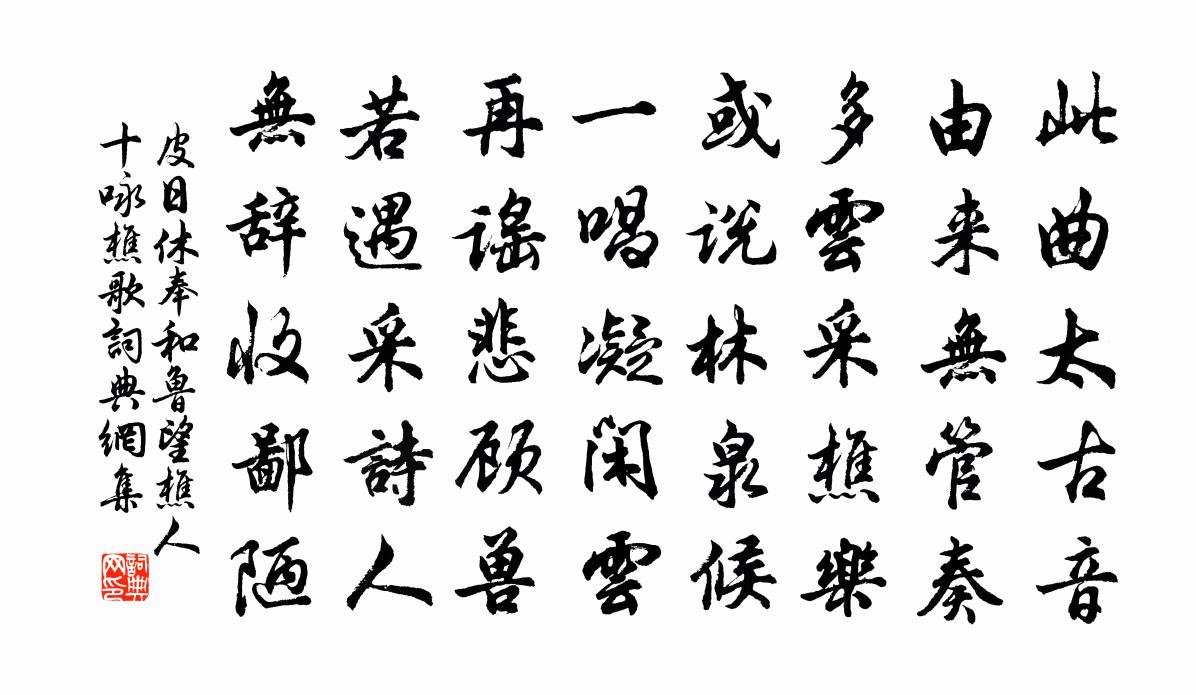 此曲太古音
由来無管奏
多雲采樵樂
或说林泉候
一唱凝闲雲
再谣悲顾兽
若遇采詩人
無辞收鄙陋
皮日休奉和鲁望樵人
十咏樵歌詞典網集
詞典
网印